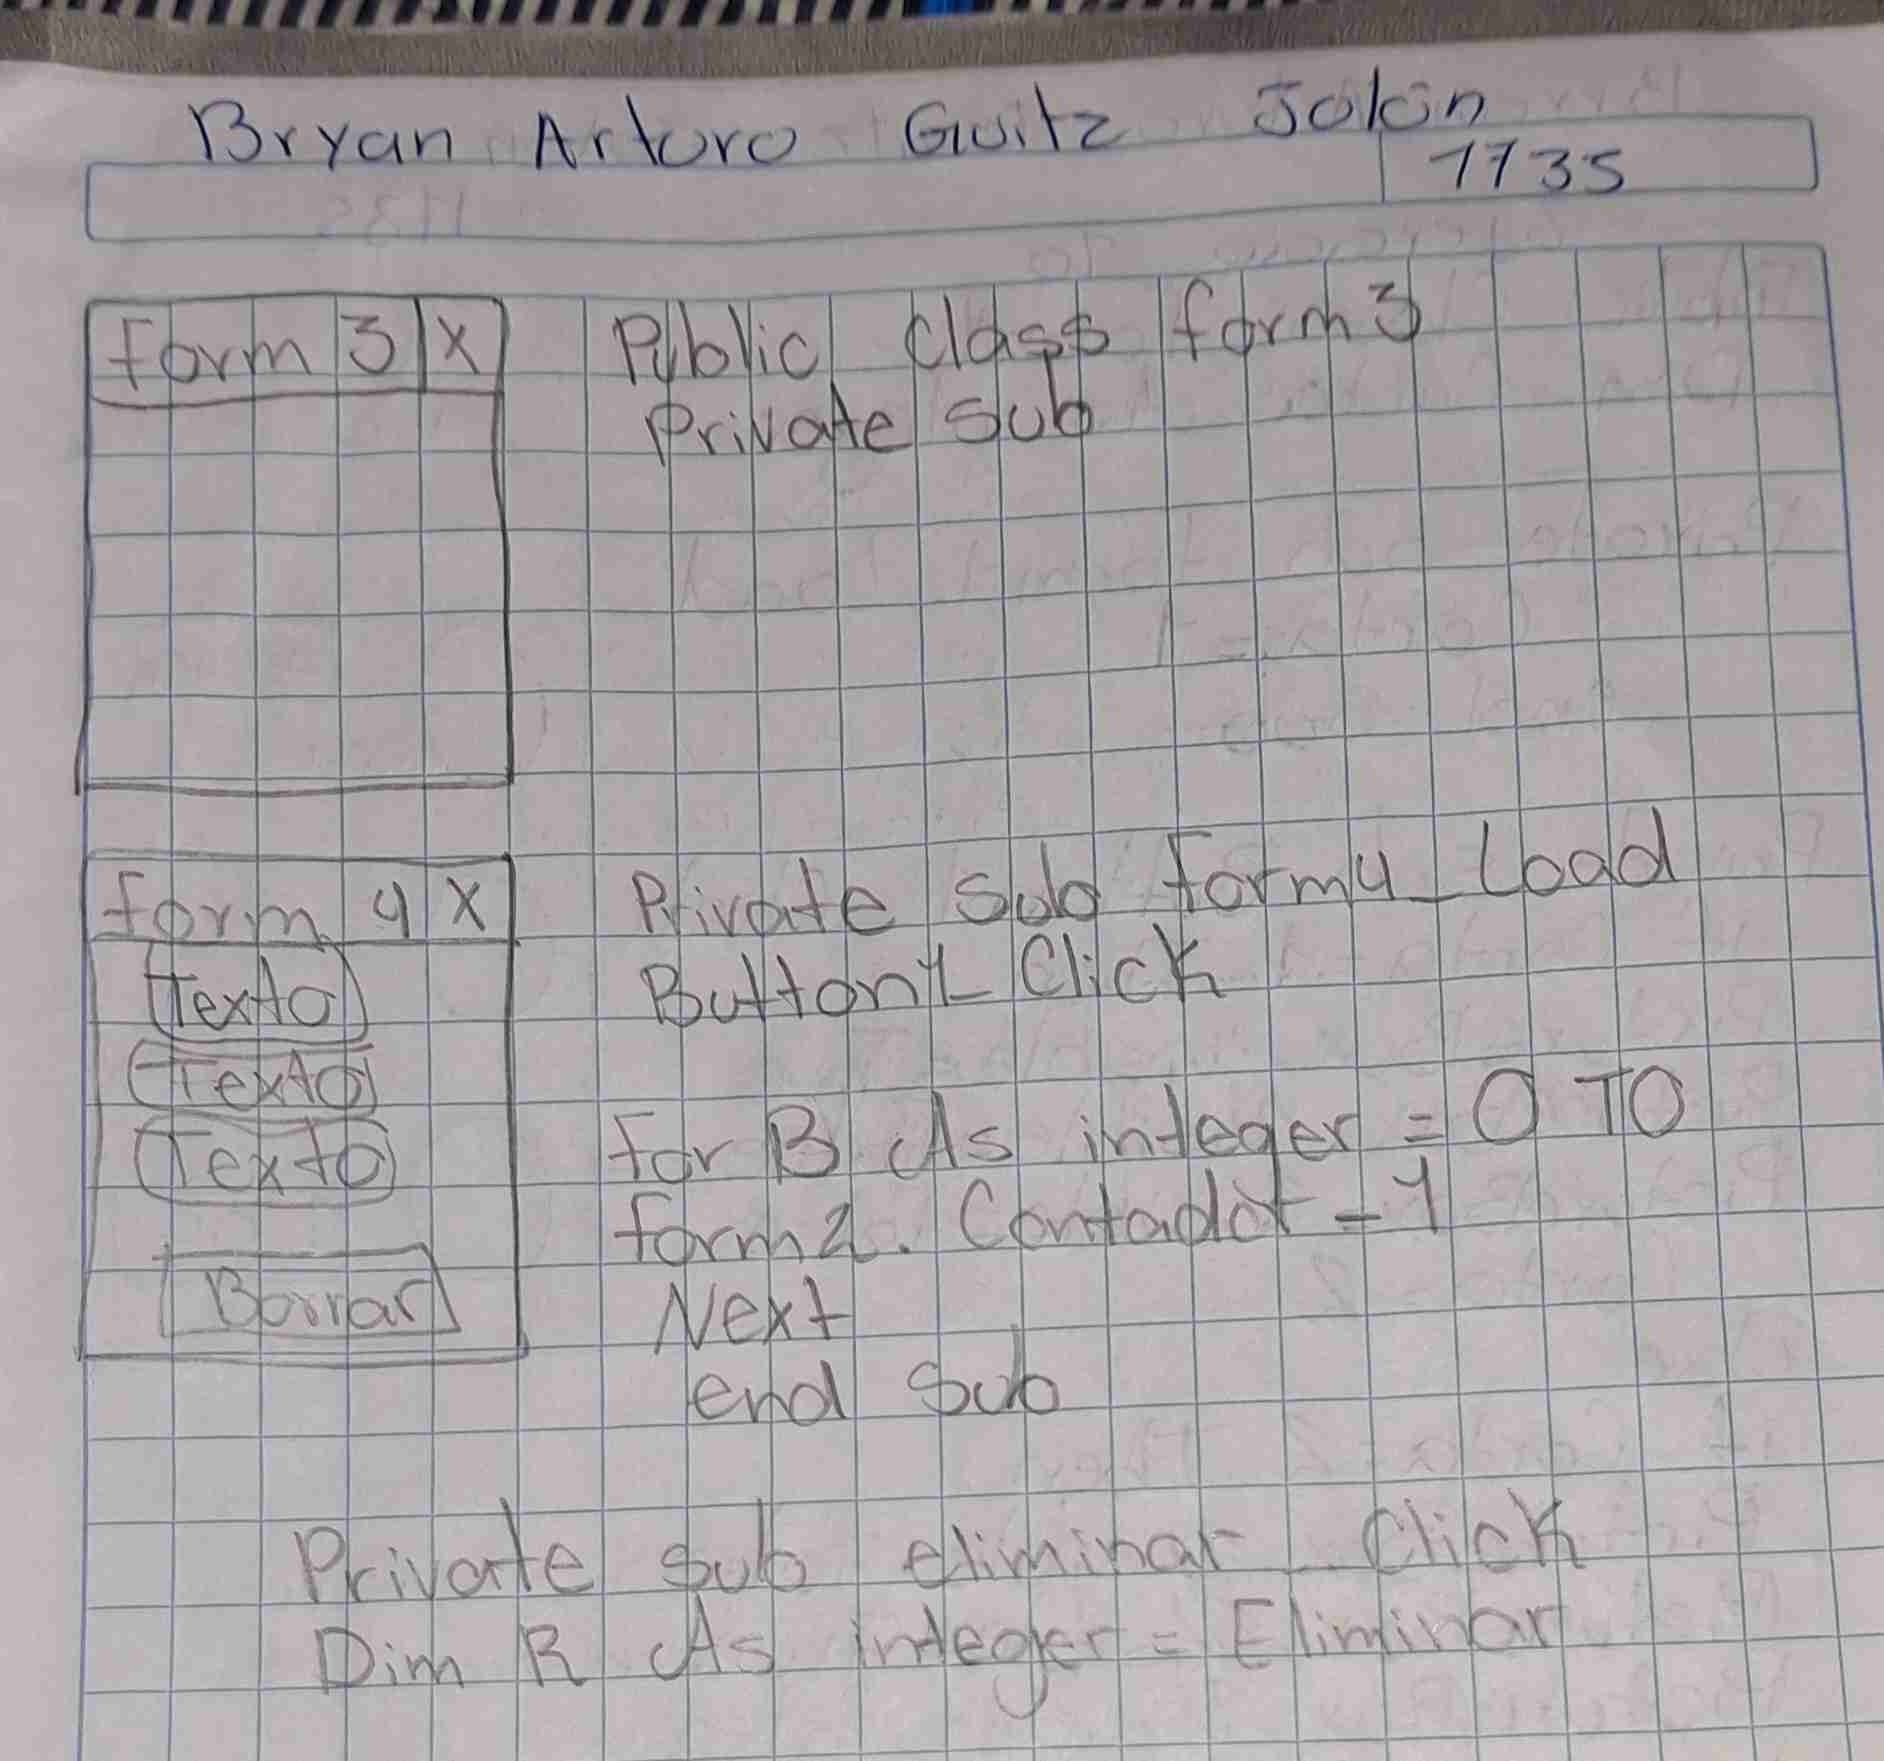 Bryan Arturo Guitz Jolón
1135
form 3 X
Public class form3
Private Sub
form 4 X
Texto
Texto
Texto
Borrar
Private Sub form4_Load
Button1_Click
for B As integer = 0 TO
form2.Contador - 1
Next
end Sub
Private Sub eliminar_Click
Dim R As integer = Eliminar